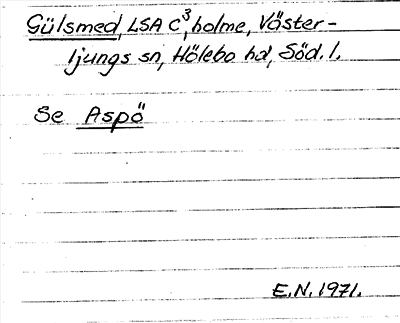 Gülsmed, LSA C³, holme, Väster-
ljungs sn, Hölebo hd, Söd. l.
Se Aspö
E.N. 1971.